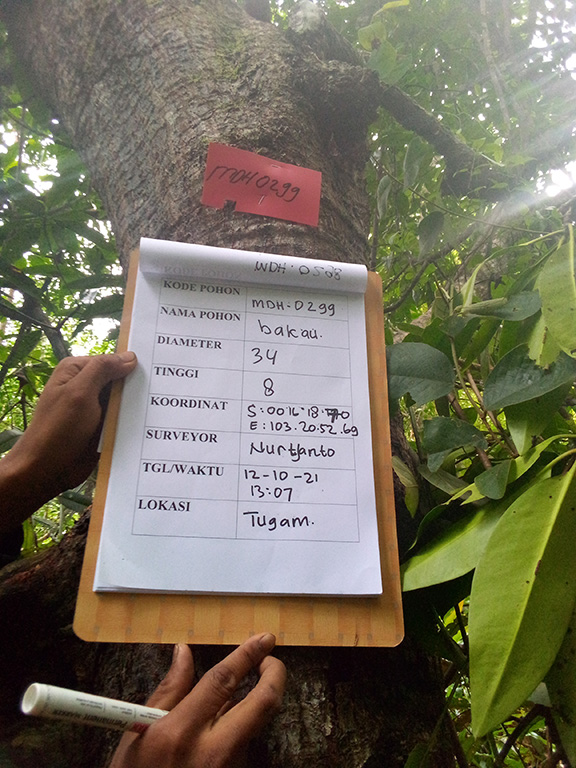 MDH0299
MDH-0528
KODE POHON MDH-0299
NAMA POHON bakau.
DIAMETER 34
TINGGI 8
KOORDINAT S:00.16.18.
E:103.20.52.69
SURVEYOR Nurtjanto
TGL/WAKTU 12-10-21
13:07
LOKASI Tugam.